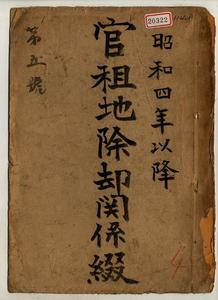 20322
昭和四年以降
官租地除却関係綴
第五號
4